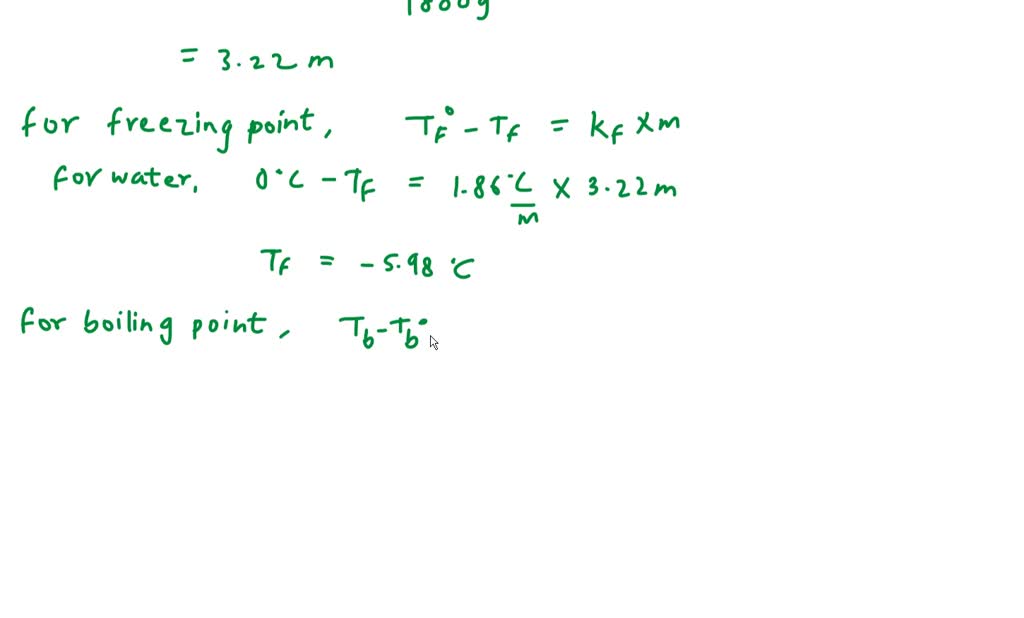 1800g
= 3.22 m
for freezing point, T_F° - T_F = k_F x m
for water, 0°C - T_F = 1.86 °C/m x 3.22 m
T_F = -5.98 °C
for boiling point, T_b - T_b°